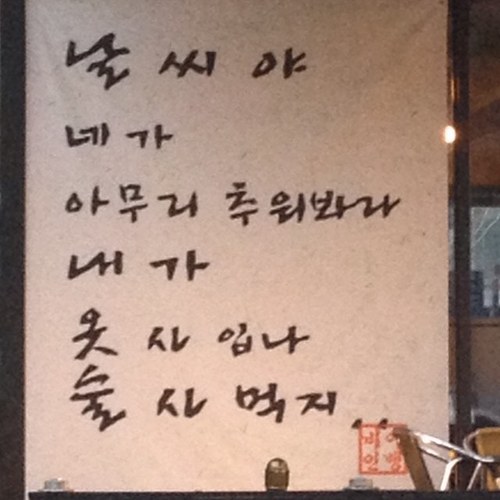 날씨야
네가
아무리 추워봐라
내가
옷 사 입나
술 사 먹지..